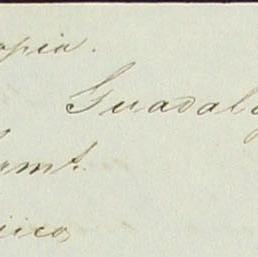 opia.
Guadal
armt.
iico,